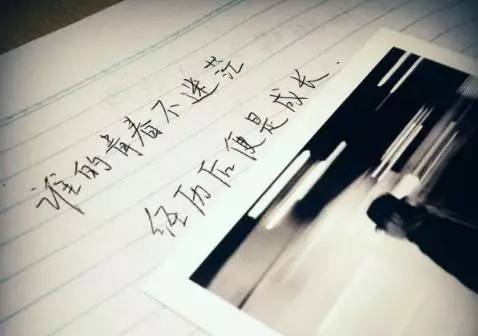 谁的青春不迷茫
经历后便是成长.